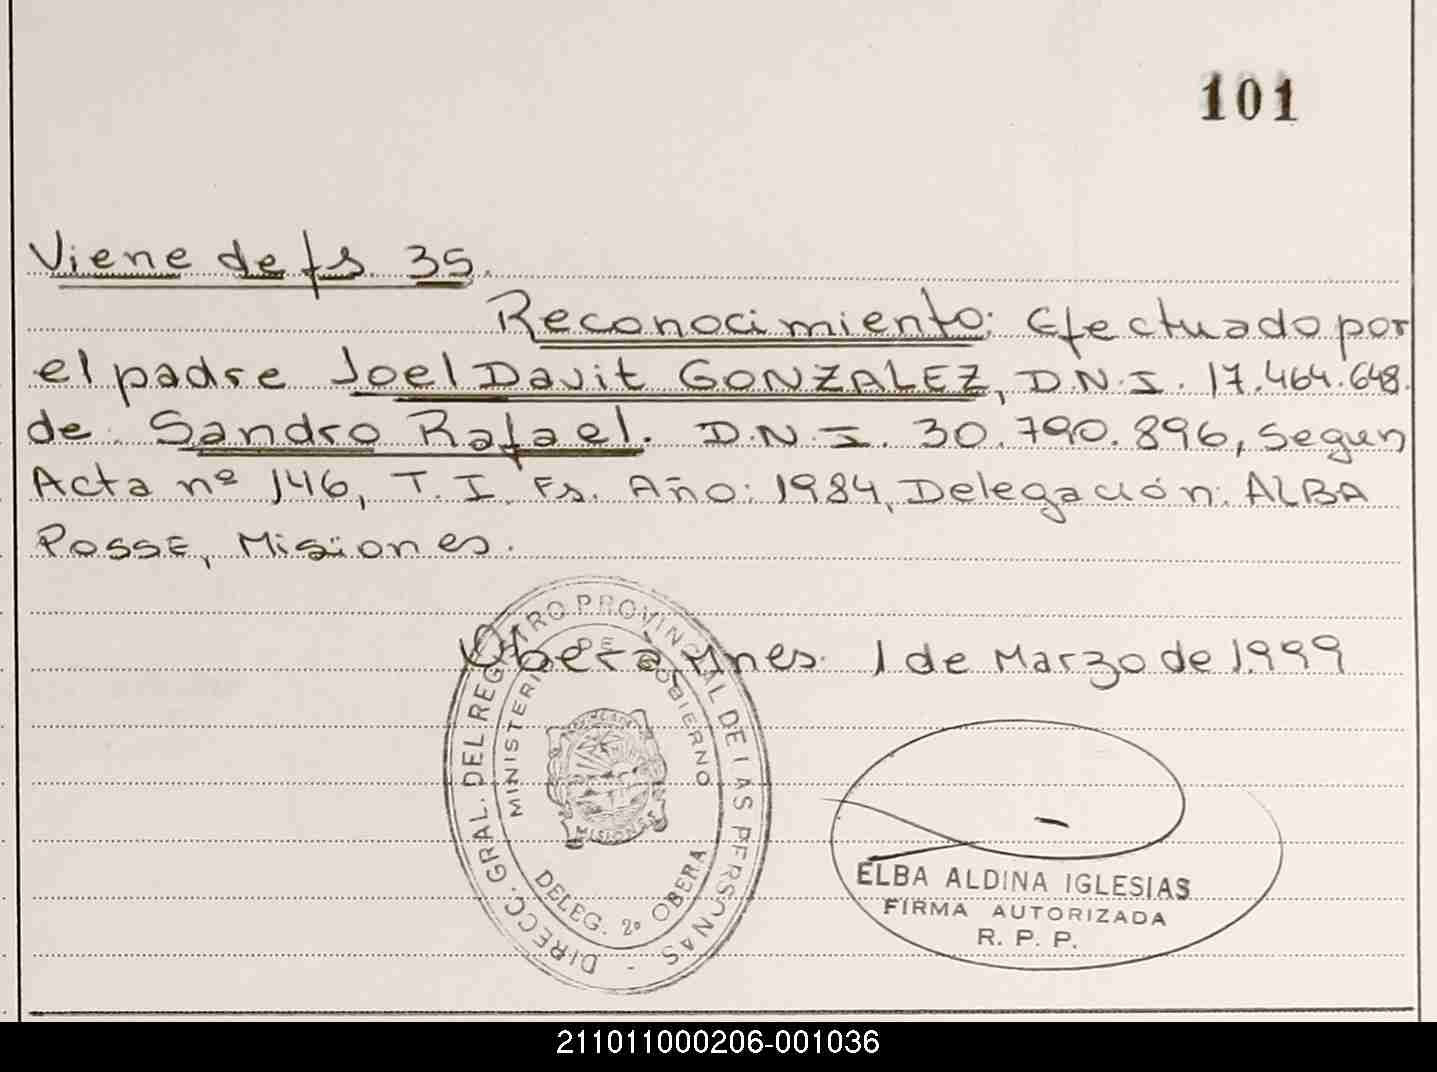 101
Viene de fs. 35.
Reconocimiento: Efectuado por
el padre Joel Davit GONZALEZ, D.N.I. 17.464.648.
de Sandro Rafael. D.N.I. 30.790.896, segun
Acta nº 146, T. I. Fs. Año: 1984, Delegación: ALBA
POSSE, Misiones.
Oberà, Mnes. 1 de Marzo de 1.999
DIRECC. GRAL. DEL REGISTRO PROVINCIAL DE LAS PERSONAS -
MINISTERIO DE GOBIERNO
MISIONES
DELEG. 2º OBERA
ELBA ALDINA IGLESIAS
FIRMA AUTORIZADA
R. P. P.
211011000206-001036